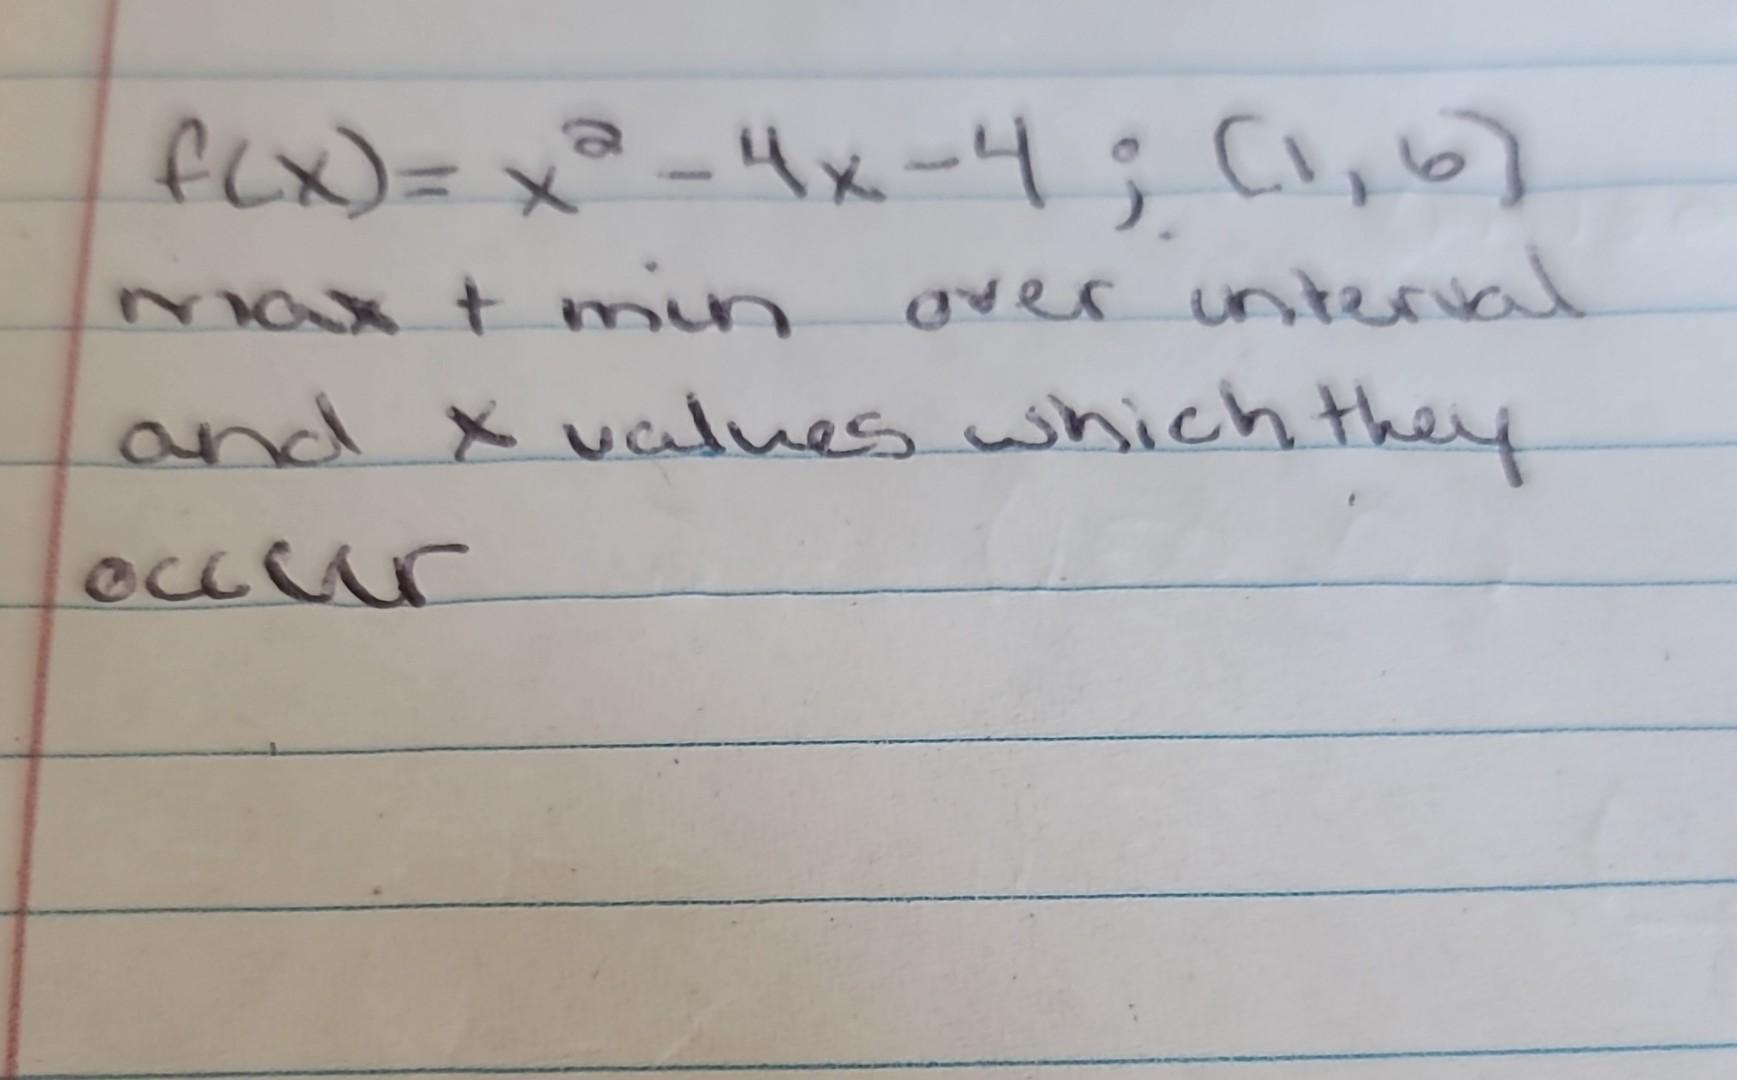 f(x) = x² - 4x - 4 ; [1, 6]
max + min over interval
and x values which they
occur